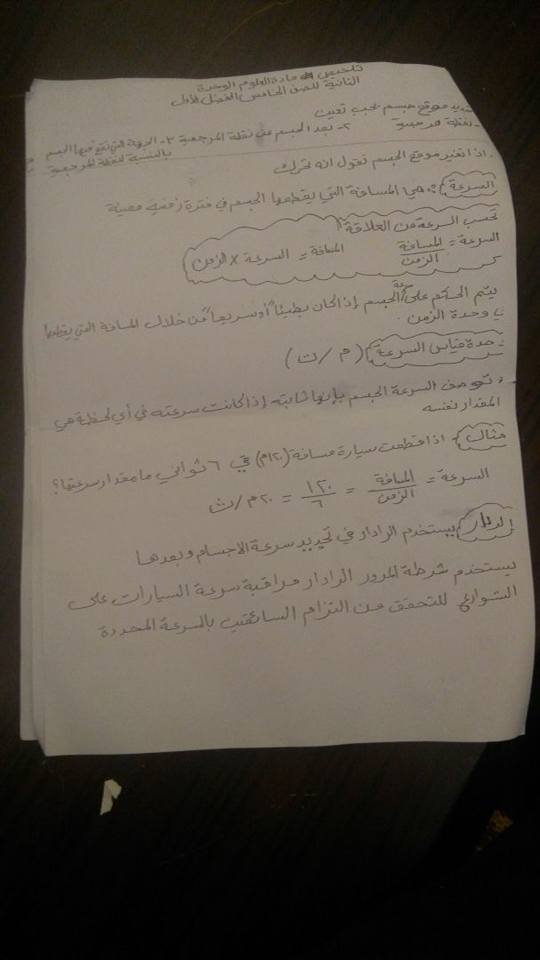 تلخيص مادة العلوم الوحدة
الثانية للصف الخامس الفصل الأول
موقع جسم يجب تعيين
نقطة مرجعية ٢- بعد الجسم عن نقطة المرجعية ٣- الجهة التي تقع فيها الجسم
بالنسبة لنقطة المرجعية
. اذا تغير موقع الجسم نقول انه تحرك
السرعة : هي المسافة التي يقطعها الجسم في فترة زمنية معينة
تحسب السرعة من العلاقة
السرعة = المسافة / الزمن المسافة = السرعة × الزمن
يتم الحكم على سرعة الجسم إذا كان بطيئاً أو سريعاً من خلال المسافة التي يقطعها
في وحدة الزمن .
وحدة قياس السرعة (م / ث)
توصف السرعة الجسم بإنها ثابته إذا كانت سرعته في أي لحظة هي
المقدار نفسه
مثال - اذا قطعت سيارة مسافة (١٢٠م) في ٦ ثواني ما مقدار سرعتها ؟
السرعة = المسافة / الزمن = ١٢٠ / ٦ = ٢٠ م/ث
الردار يستخدم الرادار في تحديد سرعة الاجسام وبعدها
يستخدم شرطة المرور الرادار مراقبة سرعة السيارات على
الشوارع للتحقق من التزام السائقين بالسرعة المحددة